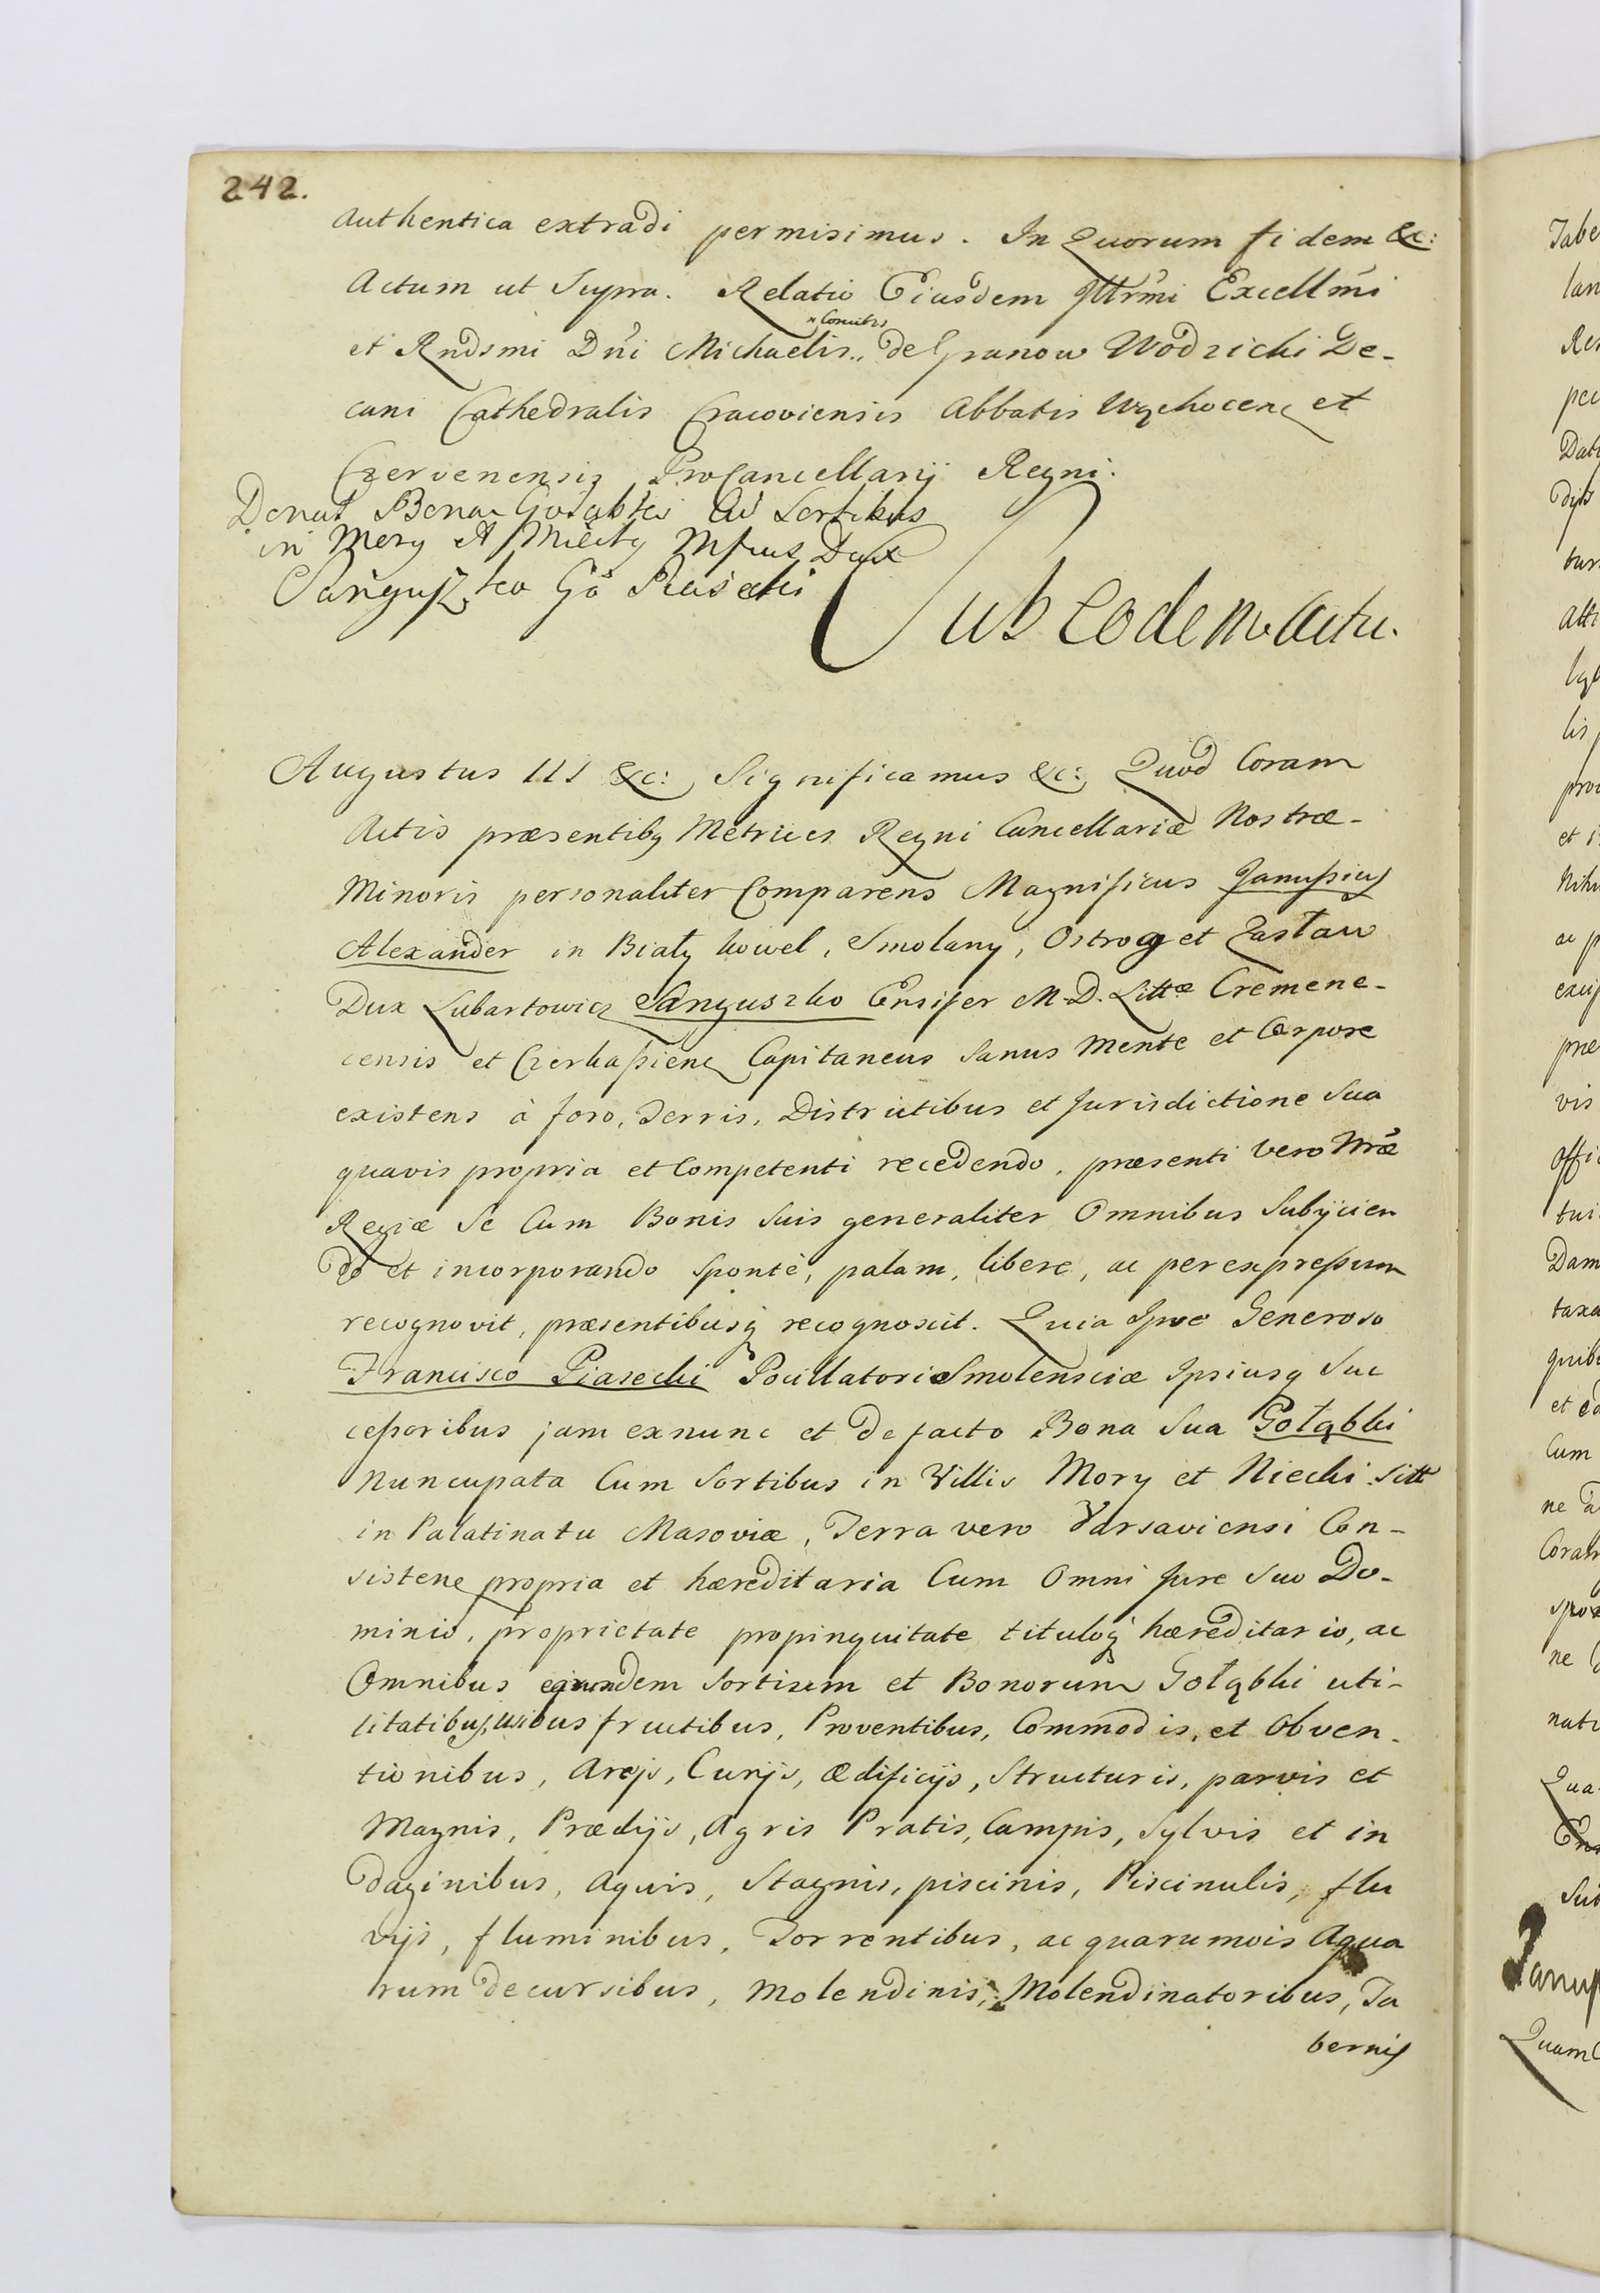 242.
Authentica extradi permisimus. In Quorum fidem &c:
Actum ut Supra. Relatio Eiusdem Illrmi Excellmi
x Comitis
et Rndsmi Dni Michaelis de Granow Wodzicki De-
cani Cathedralis Cracoviensis Abbatis Wąchocen et
Czervenensis ProCancellarij Regni.
Donat Bona Gołąbki Cū Sortibus
in Mory et Dux
Sanguszko Piasecki
Sub Eodem Actu.
Augustus III &c: Significamus &c: Quod Coram
Actis præsentibq Metrices Regni Cancellariæ Nostræ-
Minoris personaliter Comparens Magnificus Janussius
Alexander in Biały kowel, Smolany, Ostrog et Zasław
Dux Lubartowicz Sanguszko Ensifer M. D. Littæ Cremene-
censis et Czerkassiens Capitaneus Sanus Mente et Corpore
existens à foro, Terris, Districtibus et Jurisdictione Sua
quavis propria et Competenti recedendo, præsenti vero Nræ
Regiæ Se Cum Bonis Suis generaliter Omnibus Subijcien
do et incorporando Sponte, palam, libere, ac per expressum
recognovit, præsentibusq recognoscit. Quia Ipse Generoso
Francisco Piasecki Pocillatori Smolensciæ Ipsiusq Suc
cessoribus jam exnunc et de facto Bona Sua Gołąbki
Nuncupata Cum Sortibus in Villis Mory et Niecki Sitt
in Palatinatu Masoviæ, Terra vero Varsaviensi Con-
sistene propria et hæreditaria Cum Omni Jure Suo Do-
minio, proprietate propinquitate tituloq hæreditario, ac
Omnibus earundem Sortium et Bonorum Gołąbki uti-
litatibus, usibus fructibus, Proventibus, Commodis, et Obven-
tionibus, Areis, Curijs, Ædificijs, Structuris, parvis et
Magnis, Prædijs, Agris Pratis, Campis, Sylvis et in
daginibus, Aquis, Stagnis, piscinis, Piscinulis, flu
vijs, fluminibus, Torrentibus, ac quarumvis Aqua
rum decursibus, Molendinis, Molendinatoribus, Ta
bernis